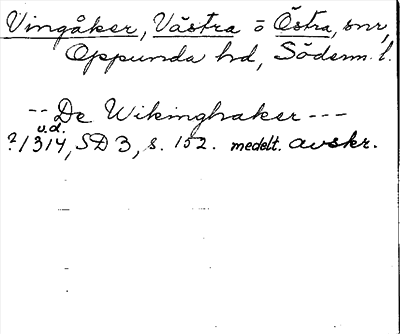 Vingåker, Västra o Östra, snr,
Oppunda hd, Söderm. l.
-- De Wikinghaker ---
u.d.
?1314, SD 3, s. 152. medelt. avskr.